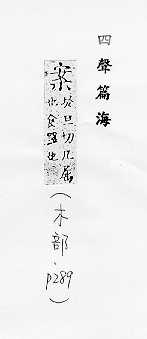 四聲篇海
案於旦切几屬
也食器也
(木部．p289)